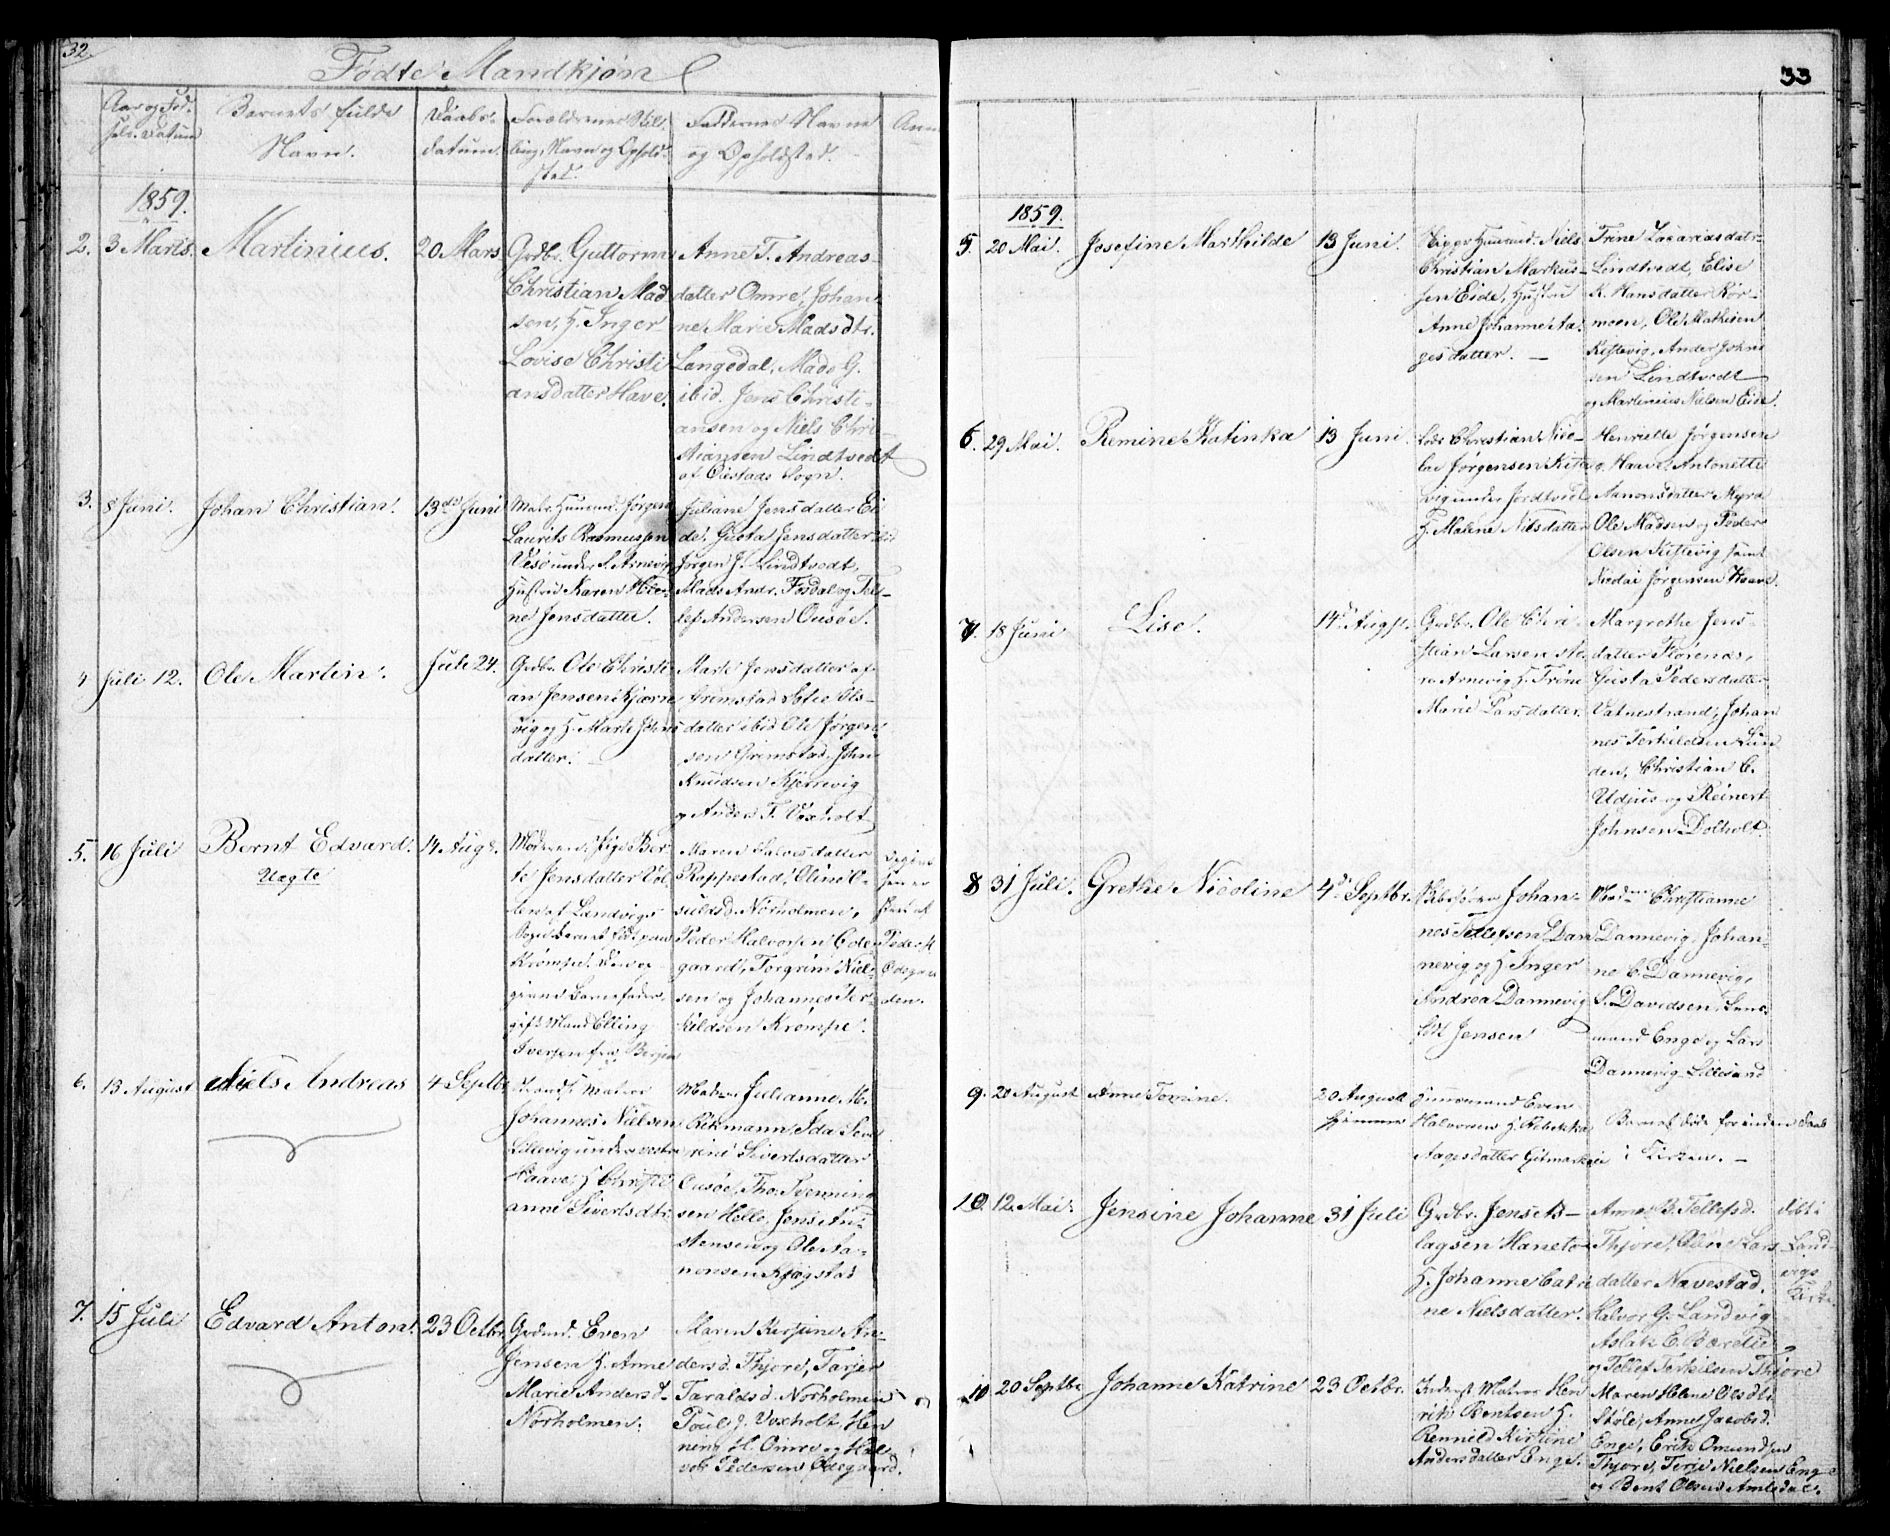 32.
Födte Mandkjön
Aar og Föd-
sels-Datum
Barnets fulde
Navn.
Daabs-
datum.
Forældrenes Stil-
ling, Navn og Ophold-
sted.
Faddernes Navne
og Opholdsted.
Anm
1859.
2. 3 Marts. Martinius. 20 Mars
Grdbr. Guttorm
Christian Mad
sen, H. Inger
Lovise Christi
ansdatter Have.
Anne T. Andreas-
datter Omre, Johan-
ne Marie Madsdtr.
Langedal, Mads G.
ibid. Jens Christi-
ansen og Niels Chri-
stiansen Lindtvedt
af Öiestads Sogn.
3. 8 Juni. Johan Christian. 13de Juni
Jörgen
Laurits Rasmussen
Vesö under S. Arnevig
Hustru Karen
ne Jensdatter.
Juliane Jensdatter Ei
de. Gusta Jensdatter ibid
Jörgen J. Lindtvedt,
Mads Andr. Fosdal og Tel-
lef Andersen Ousöe.
4 Juli 12. Ole Martin. Juli 24.
Grdbr. Ole Christi
an Jensen Kjærre
vig og H. Marte Johns
datter.
Marte Jensdatter af
Grimstad Sofie Ols-
datter ibid Ole Jörgen-
sen Grimstad, John
Knudsen Kjerrevig
og Anders T. Voxholt
5. 16 Juli Bernt Edvard. 14 Aug.
Uægte
Moderen: Pige Ber-
te Jensdatter
af Landvigs
Sogn Barnet födt paa
Krömpe.
Barnefader,
gift Mand Elling
Iversen fra Bergen
Maren Halvorsdatter
Roppestad, Oline O-
sulsd. Norholmen,
Peder Halvorsen Öde-
gaard, Torgrim Niel-
sen og Johannes Ter-
kildsen Krömpe.
Peder H.
Ödegaar
den.
6. 13 August Niels Andreas 4 Septbr
Matros
Johannes Nielsen
Lillevig under vestre
Haave, H. Christi
anne Sivertsdtr.
Madme Julianne M.
Rikmann Ida Seve
rine Sivertsdatter
Ousöe, Tho. Svenning
sen Helle, Jens An-
stensen og Ole Aa-
nonsen Kjögstad
7. 15 Juli Edvard Anton. 23 Octbr.
Grdmd. Even
Jensen H. Anne
Marie Andersd.
Norholmen.
Maren Kirstine An-
dersd. Thjore, Tarjer
Taraldsd. Norholmen
Poul J. Voxholt, Hen
ning H. Omre og Hal-
vor Pedersen Ödegaard.
33
1859.
5. 20 Mai. Josefine Marthilde 13 Juni.
Niels
Christian Markus-
sen Eide, Hustru
Anne Johanne Aa-
gesdatter.
Trine Zacariasdatr
Lindtvedt, Elise
K. Hansdatter Kör-
moen, Ole Mathisen
Kistevig, Anders Johne
sen Lindtvedt
og Martinius Nielsen Eide.
6. 29 Mai. Remine Katinka 13 Juni.
Lods Christian Nico-
lai Jörgensen Kiste
vig under Jordtvedt
H. Malene Nilsdatter
Henriette Jörgensen
Haave. Antonette
Aanonsdatter Myra
Ole Madsen og Peder
Olsen Kistevig samt
Nicolai Jörgensen Haave.
7. 18 Juni Lise. 14d Augst.
Grdbr. Ole Chri-
stian Larsen sto-
re Arnevig H. Trine
Marie Larsdatter.
Margrethe Jens-
datter Florenæs,
Gusta Pedersdatter
Vatnestrand, Johan
nes Terkildsen Lun
den, Christian C.
Udjus og Reinert
Johnsen Dolholt.
8 31 Juli. Grethe Nicoline 4d Septbr.
Johan-
nes Tellefsen Dan
nevig og H. Inger
Andrea Dannevig
föd Jensen
Madme Christianne
Dannevig, Johan-
ne C. Dannevig,
S. Davidsen, Lens-
mand Enge og Lars
Dannevig Lillesand
9. 20 August Anne Tomine. 20 August
hjemme
Even
Halvorsen H. Rebekka
Aagesdatter Gitmarkeie
Barnet döde forinden Daab
i Kirken. –
10. 12. Mai. Jensine Johanne 31 Juli
Grdbr. Jens As-
lagsen Haneto
H. Johanne Catri
ne Nielsdatter.
Anne B. Tellefsd.
Thjore, Oline Lars-
datter Navestad.
Halvor G. Landvig
Aslak E. Bareeie
og Tellef Terkilsen Thjore
döbt i
Land-
vigs
Kirke
10 20 Septbr Johanne Katrine 23 Octbr.
Matros Hen
rik Bentsen H.
Rennild Kirstine
Andersdatter Enge.
Maren Helene Olsdtr
Stöle, Anne Jacobsd.
Enge, Erik Omundsen
Thjore, Terje Nielsen Enge
og Bent Olsen Amlidal.